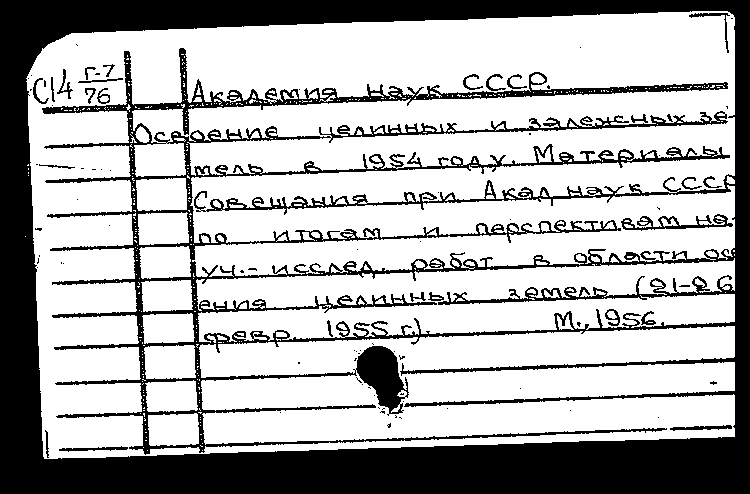 С14 Г-7/76
Академия наук СССР.
Освоение целинных и залежных зе-
мель в 1954 году. Материалы
Совещания при Акад. наук СССР
по итогам и перспективам на-
уч.-исслед. работ в области осв
ения целинных земель (21-26
февр. 1955 г.). М., 1956.